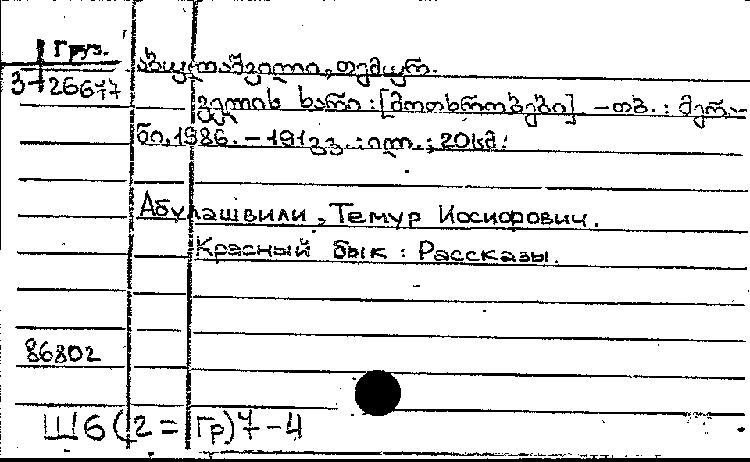 Груз.
3-26677
აბულაშვილი, თემურ.
ველის ხარი : [მოთხრობები]. - თბ. : მერა-
ნი, 1986. - 191 გვ. : ილ. ; 20 სმ.
Абулашвили, Темур Иосифович.
Красный бык : Рассказы.
86802
Ш6(2=Гр)7-4